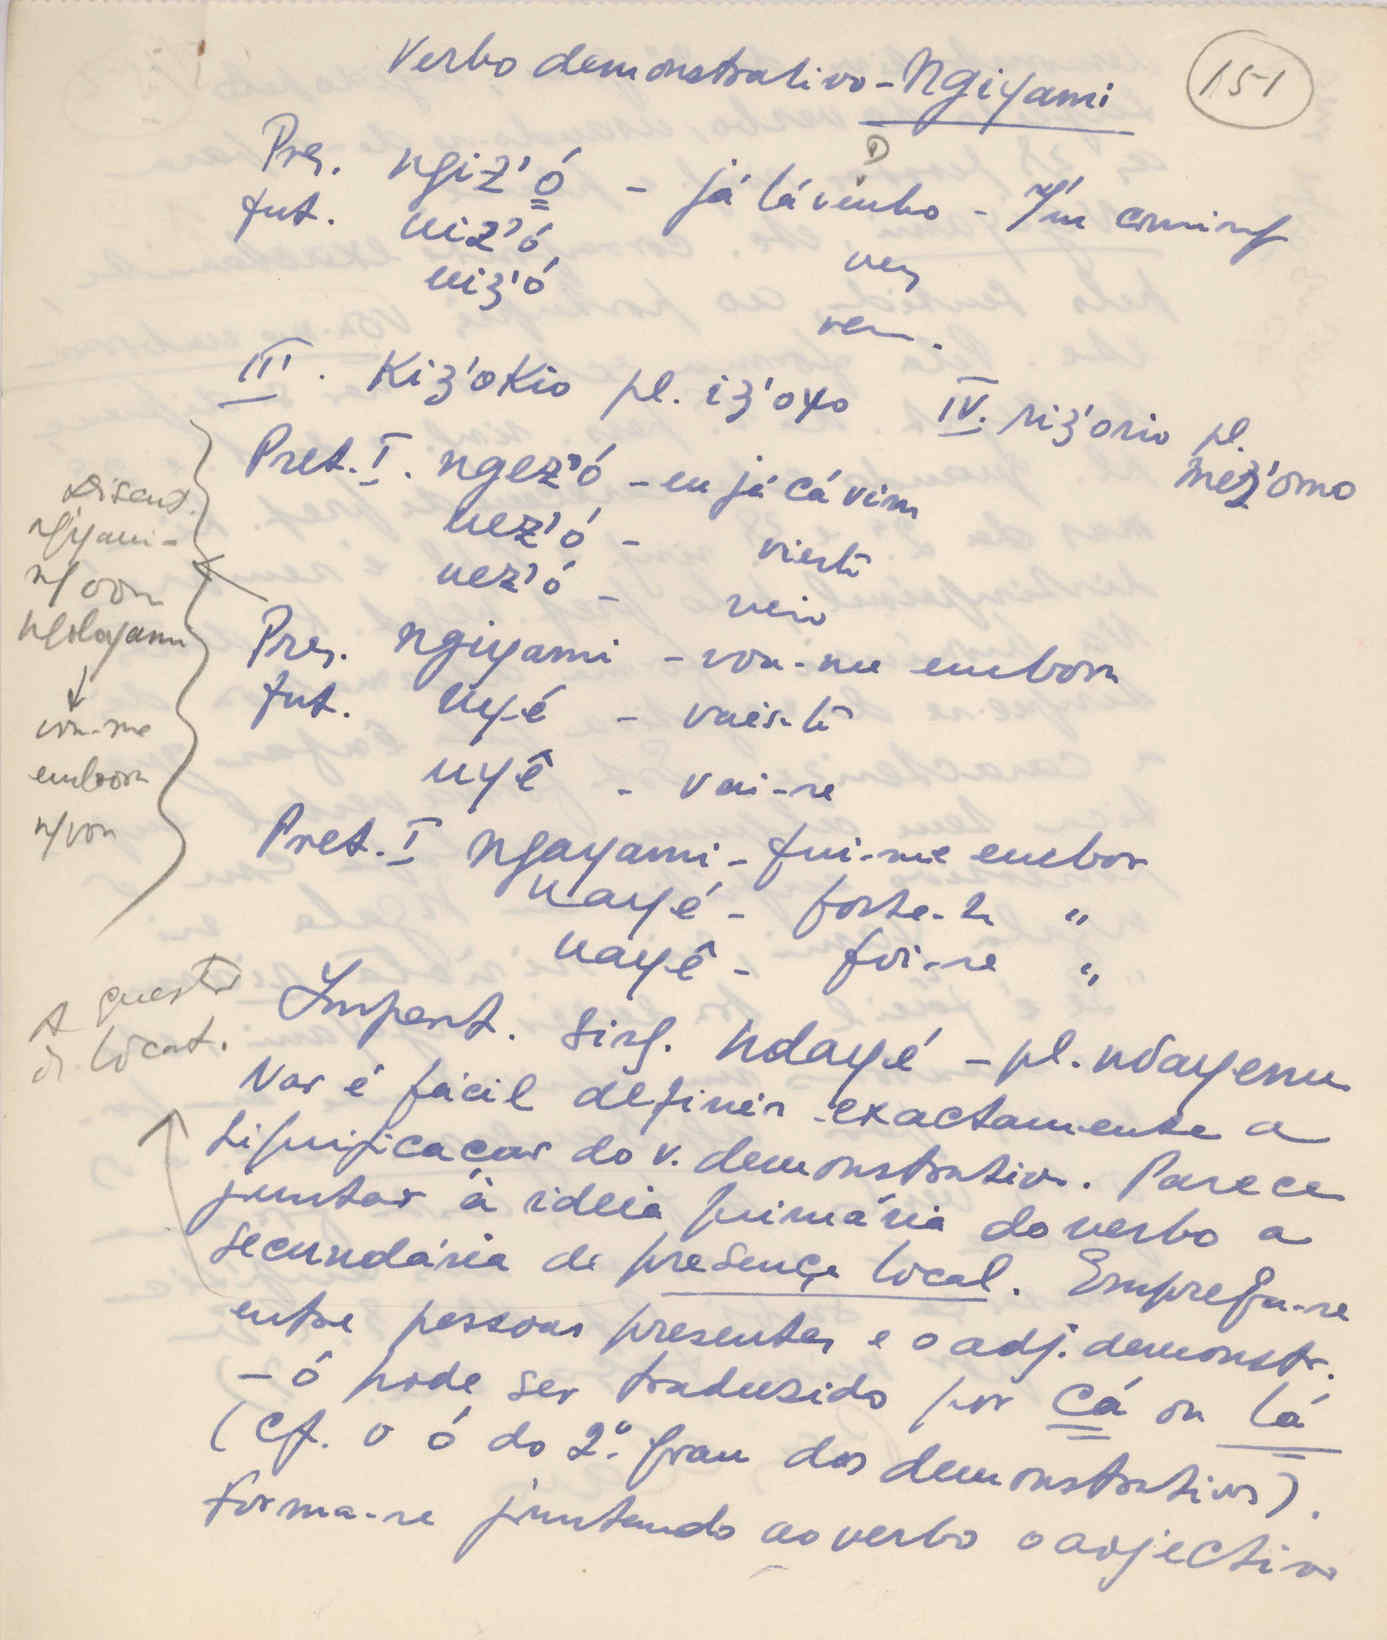 Verbo demonstrativo - Ngiyami
151
Pres. ngiz'ó - já lá venho - I'm coming
fut. uiz'ó ven
uiz'ó vem.
III. Kiz'oKio pl. iz'oyo IV. riz'orio pl.
mez'omo
Pret. I. ngez'ó - eu já cá vim
uez'ó - viestè
uez'ó - veio
Pres. ngiyami - vou-me embora
fut. uyé - vais-te
uyê - vai-se
Pret. I ngayami - fui-me embora
uayé - foste-te "
uayê - foi-se "
Discut.
ngiyami -
vou-me
embora
A questão
d. locat.
Imperat. Sing. ndayé - pl. ndayenu
Não é fácil definir exactamente a
significação do v. demonstrativo. Parece
juntar à ideia primária do verbo a
secundária de presença local. Emprega-se
entre pessoas presentes e o adj. demonstr.
- ó pode ser traduzido por cá ou lá
(Cf. o ó do 2º. grau dos demonstrativos).
Forma-se juntando ao verbo o adjectivo